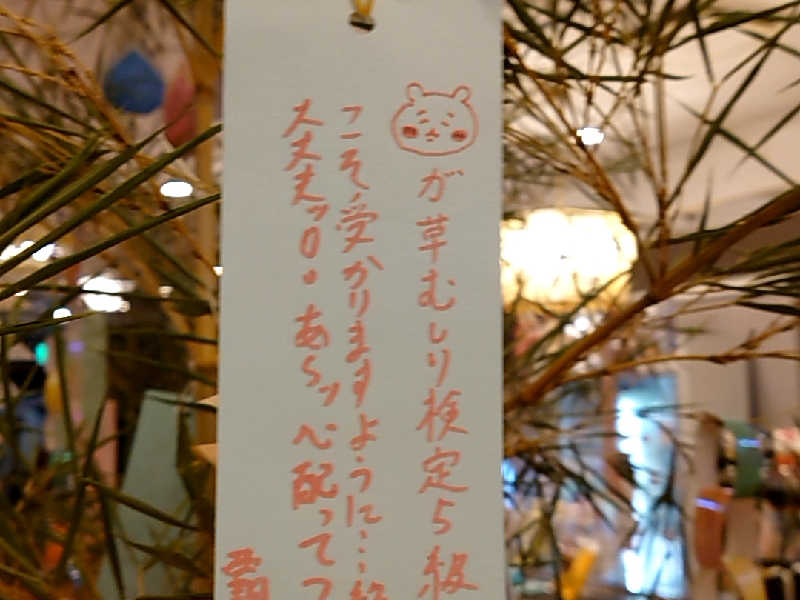 が草むしり検定5級
こそ受かりますように…
大丈夫ッ!!あらッ心配って